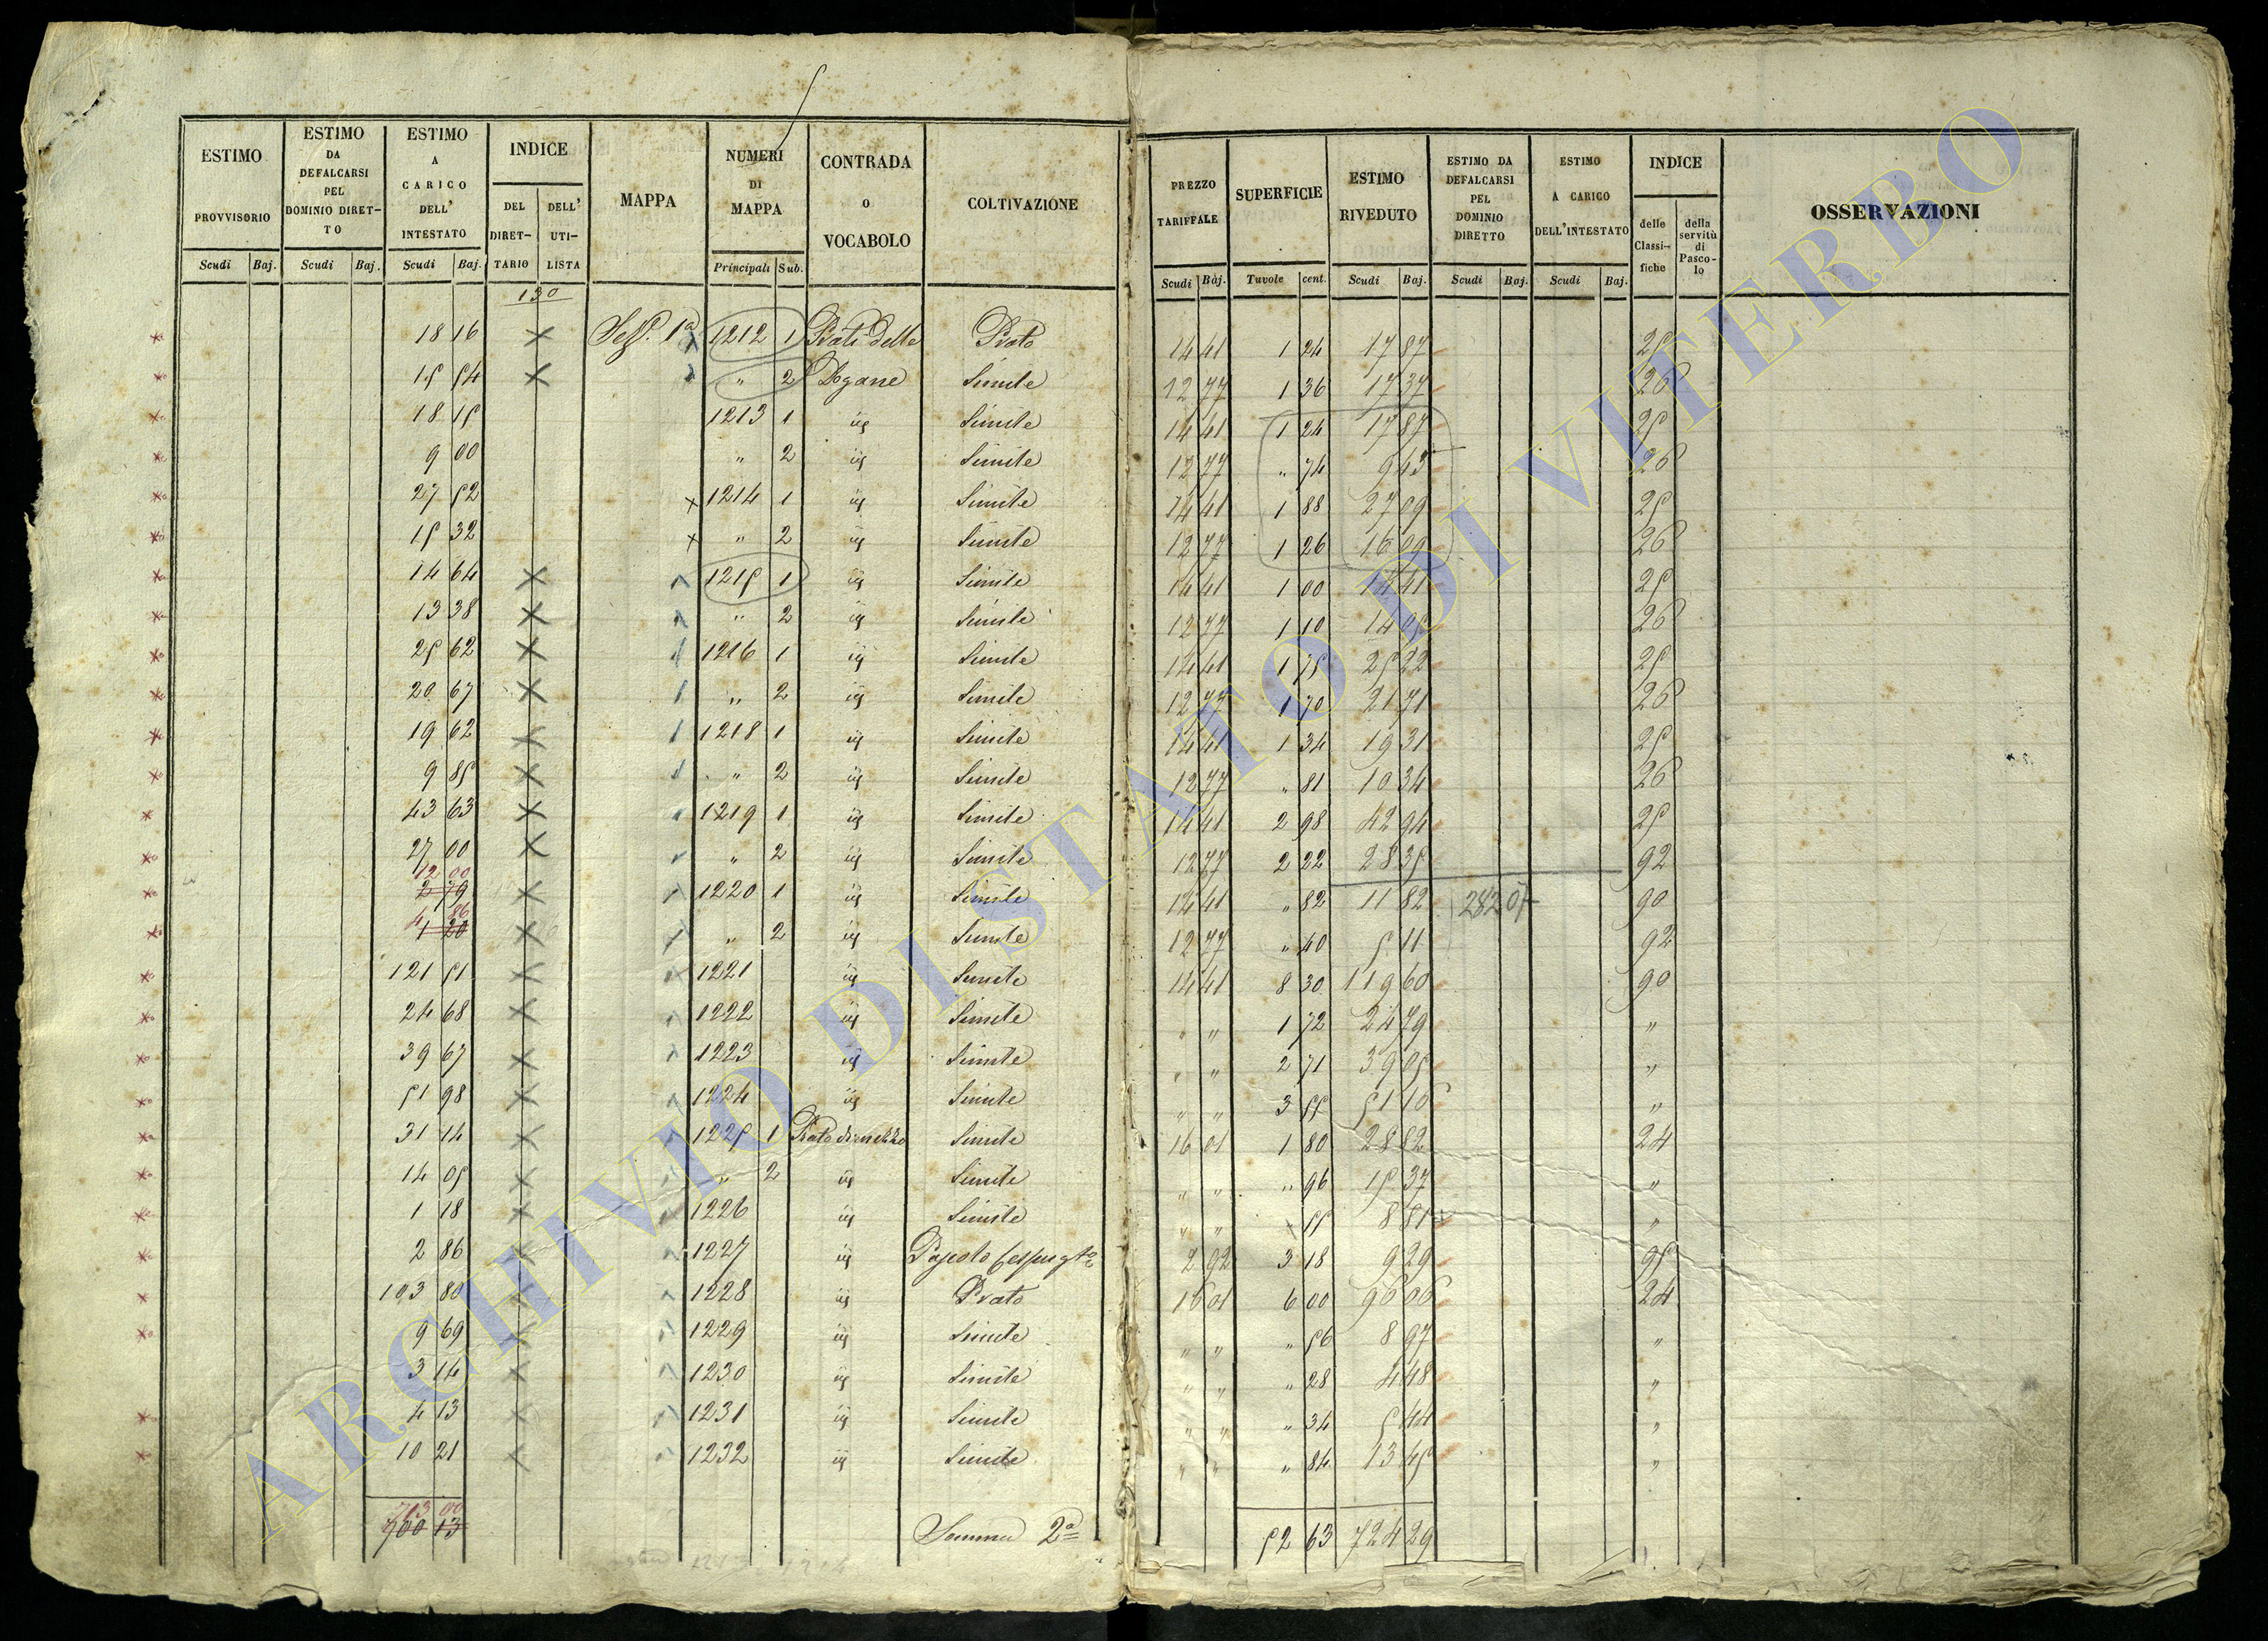 ESTIMO PROVVISORIO ESTIMO DA DEFALCARSI PEL DOMINIO DIRETTO ESTIMO A CARICO DELL' INTESTATO INDICE DEL DIRETTARIO DELL' UTILISTA MAPPA NUMERI DI MAPPA CONTRADA O VOCABOLO COLTIVAZIONE PREZZO TARIFFALE SUPERFICIE ESTIMO RIVEDUTO ESTIMO DA DEFALCARSI PEL DOMINIO DIRETTO ESTIMO A CARICO DELL'INTESTATO INDICE delle Classifiche della servitù di Pascolo OSSERVAZIONI
Scudi Baj. Scudi Baj. Scudi Baj. Principali Sub. Scudi Baj. Tavole cent. Scudi Baj. Scudi Baj. Scudi Baj.
130
18 16 Sez. 1ª 1212 1 Prati delle Prato 14 41 1 24 17 87 25
15 54 " 2 Dogane Simile 12 77 1 36 17 37 26
18 15 1213 1 iij Simile 14 41 1 24 17 87 25
9 00 " 2 iij Simile 12 77 " 74 9 45 26
27 52 1214 1 iij Simile 14 41 1 88 27 09 25
15 32 " 2 iij Simile 12 77 1 26 16 09 26
14 64 1215 1 iij Simile 14 41 1 00 14 41 25
13 38 " 2 iij Simile 12 77 1 10 14 05 26
25 62 1216 1 iij Simile 14 41 1 75 25 22 25
20 67 " 2 iij Simile 12 77 1 70 21 71 26
19 62 1218 1 iij Simile 14 41 1 34 19 31 25
9 85 " 2 iij Simile 12 77 " 81 10 34 26
43 63 1219 1 iij Simile 14 41 2 98 42 94 25
27 00 " 2 iij Simile 12 77 2 22 28 35 92
12 00
2 79 1220 1 iij Simile 14 41 " 82 11 82 282 05 90
4 86
1 20 " 2 iij Simile 12 77 " 40 5 11 92
121 51 1221 iij Simile 14 41 8 30 119 60 90
24 68 1222 iij Simile " " 1 72 24 79 "
39 67 1223 iij Simile " " 2 71 39 05 "
51 98 1224 iij Simile " " 3 55 51 16 "
31 14 1225 1 Prato di mezzo Simile 16 01 1 80 28 82 24
14 05 " 2 iij Simile " " " 96 15 37 "
1 18 1226 iij Simile " " " 55 8 81 "
2 86 1227 iij Pascolo cespugto 2 92 3 18 9 29 95
103 80 1228 iij Prato 16 01 6 00 96 06 24
9 69 1229 iij Simile " " " 56 8 97 "
3 14 1230 iij Simile " " " 28 4 48 "
4 13 1231 iij Simile " " " 34 5 44 "
10 21 1232 iij Simile " " " 84 13 45 "
713 00
700 13 Somma 2ª 52 63 724 29
ARCHIVIO DI STATO DI VITERBO